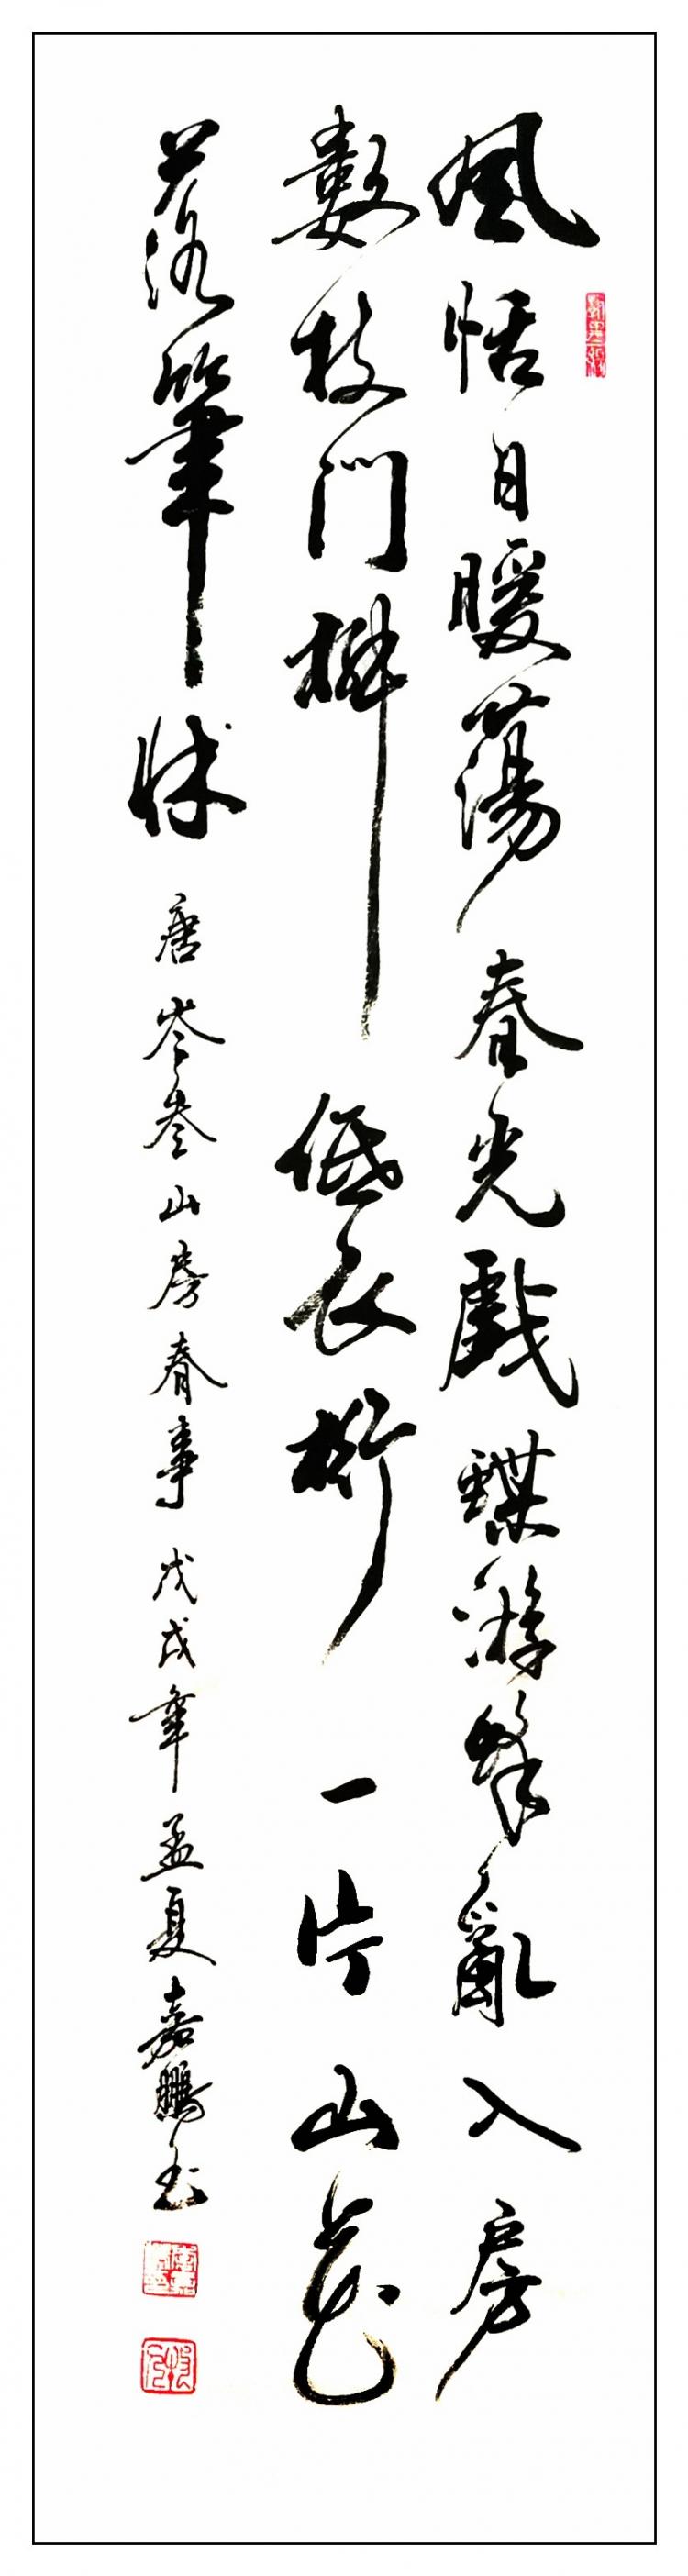 風恬日暖蕩春光戲蝶游蜂亂入房
數枝門柳低衣桁一片山花
落筆牀 唐岑參山房春事 戊戌年孟夏嘉鵬书